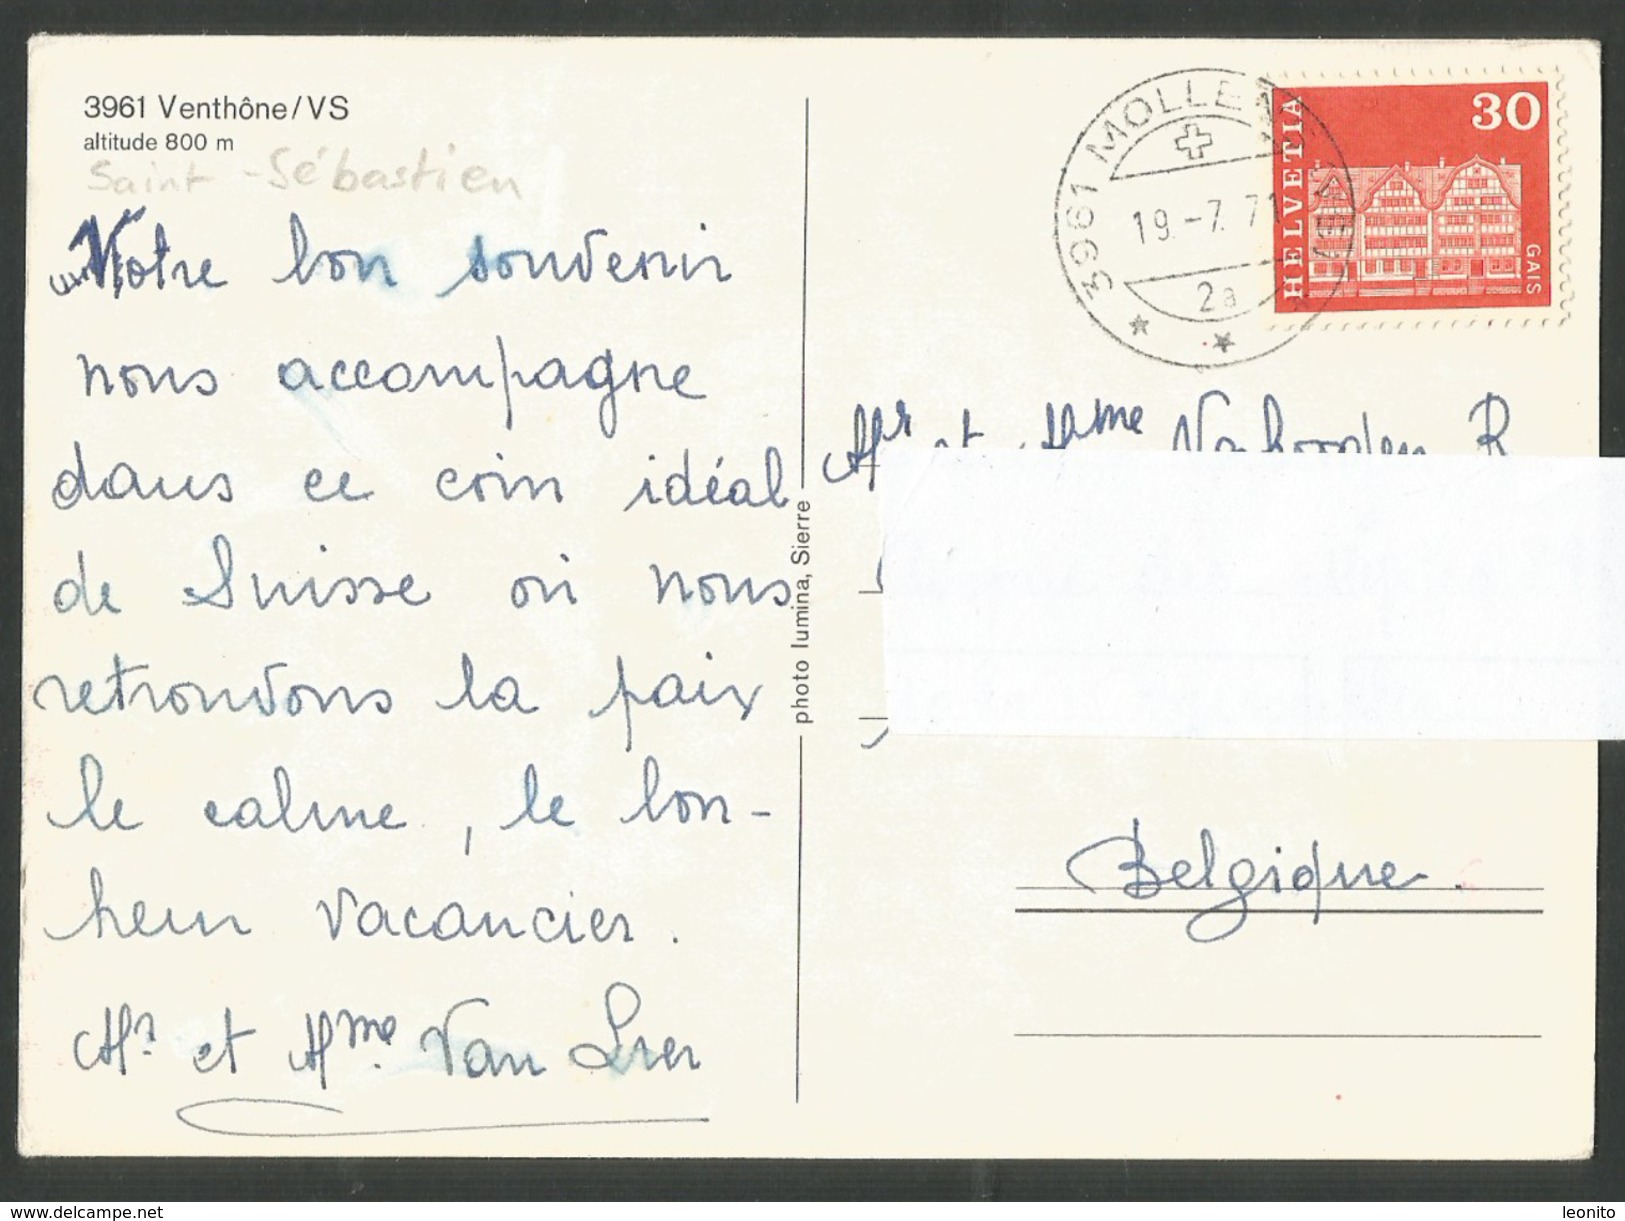 3961 Venthône/VS
altitude 800 m
Saint-Sébastien
Notre bon souvenir
nous accompagne
dans ce coin idéal
de Suisse où nous
retrouvons la paix
le calme, le bon-
heur vacancier.
Mr et Mme Van Lier
photo lumina, Sierre
3961 MOLLENS
19.-7.71
2a
HELVETIA
30
GAIS
Mr et Mme R
Belgique.
www.delcampe.net
leonito